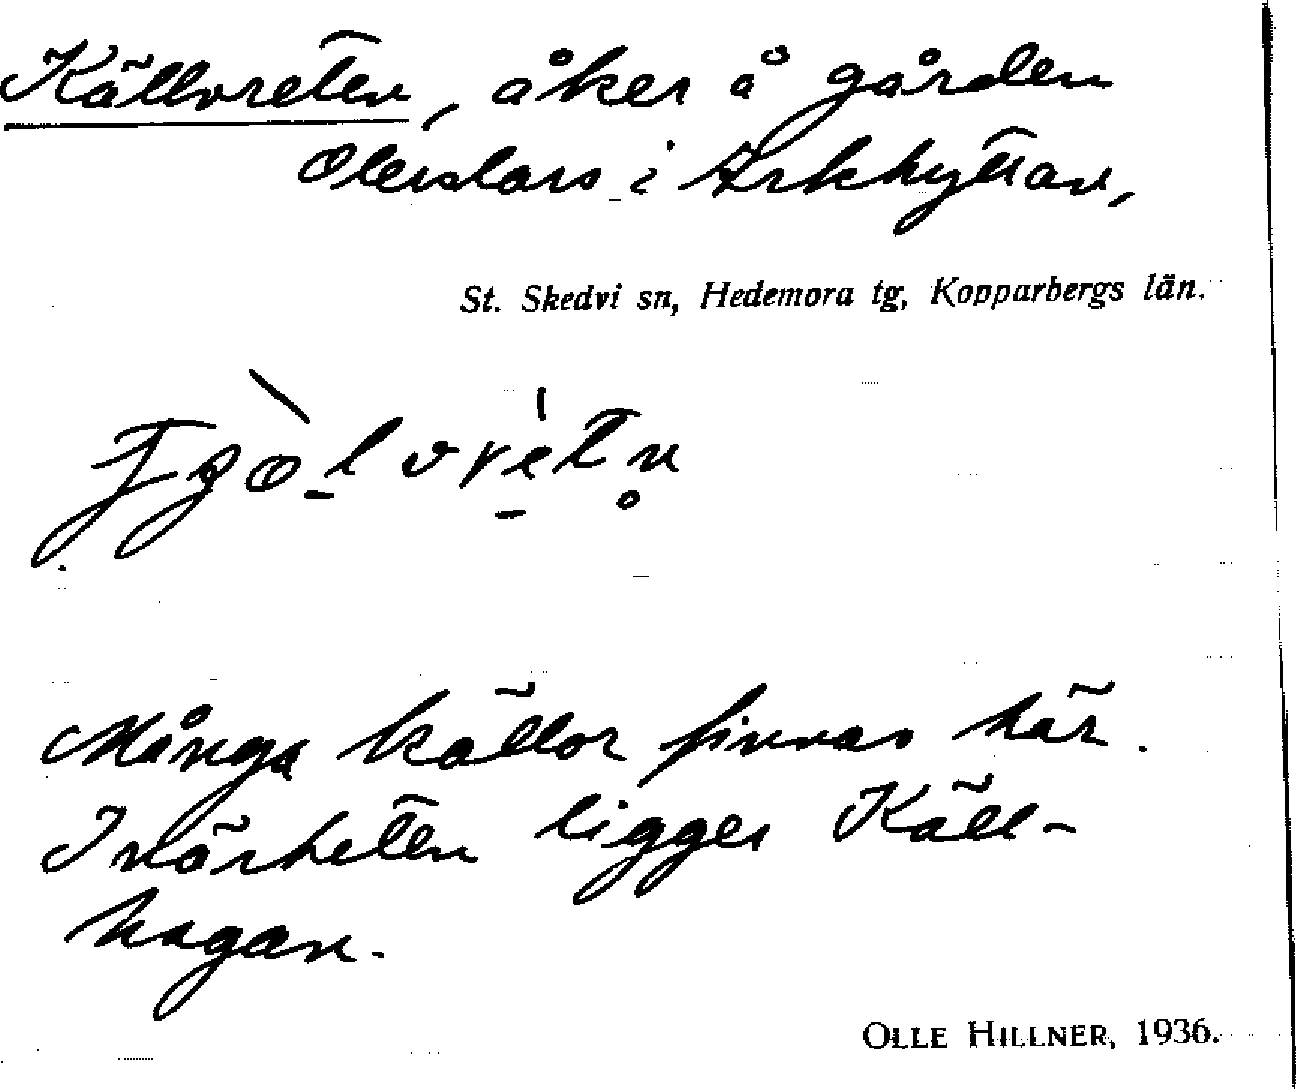 Källvreten, åker å gården
Olerslars i Arkhyttan,
St. Skedvi sn, Hedemora tg, Kopparbergs län.
Många källor finnas här.
I närheten ligger Käll-
hagan.
OLLE HILLNER, 1936.